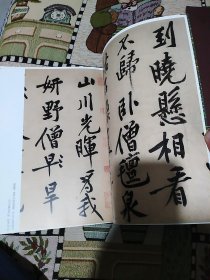 到曉懸相看
不歸臥僧氊泉
山川光暉為我
妍野僧早旱